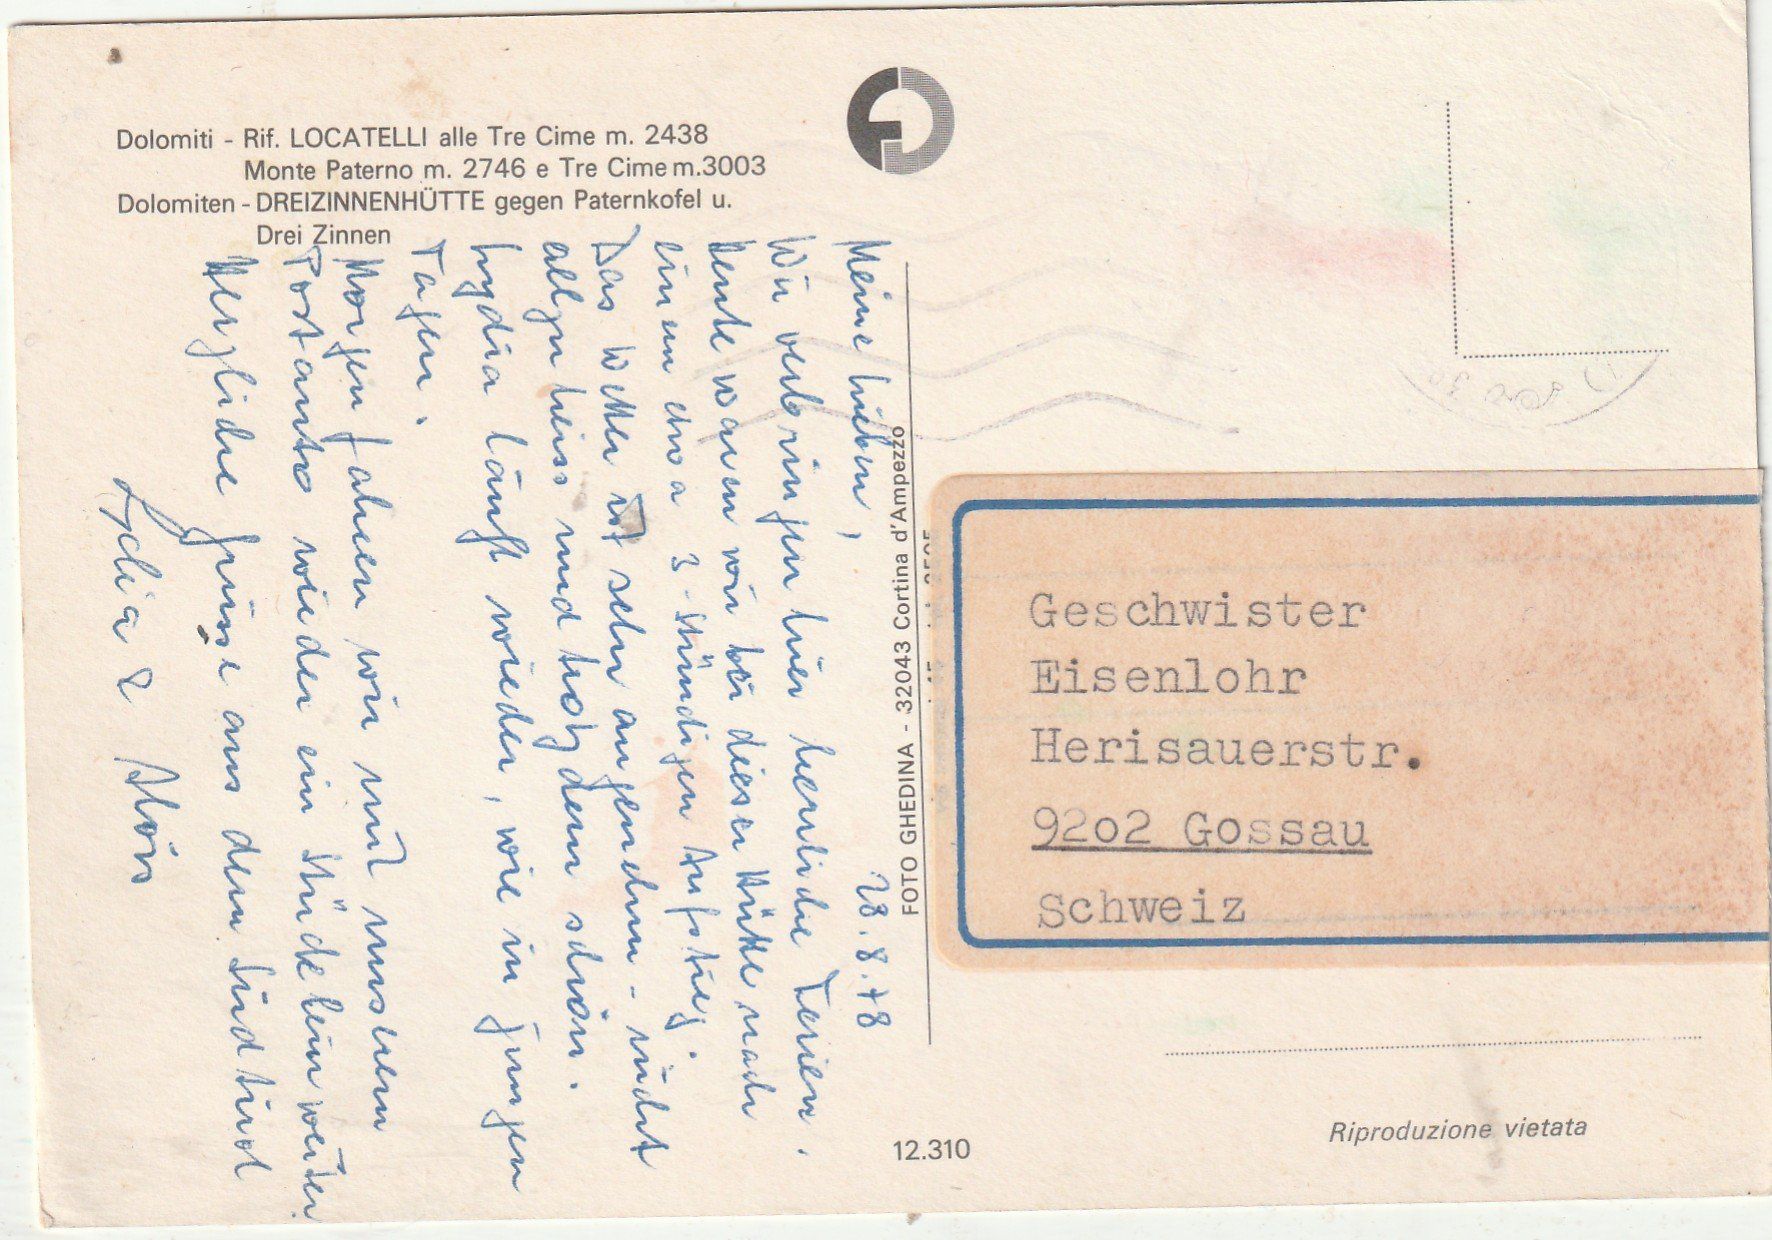 Dolomiti - Rif. LOCATELLI alle Tre Cime m. 2438
Monte Paterno m. 2746 e Tre Cime m. 3003
Dolomiten - DREIZINNENHÜTTE gegen Paternkofel u.
Drei Zinnen
28.8.78
Meine Lieben,
Wir verbringen hier herrliche Ferien.
Heute waren wir bei dieser Hütte nach
einem etwa 3-stündigen Aufstieg.
Das Wetter ist sehr angenehm - nicht
allzu heiss und trotzdem schön.
Lydia läuft wieder, wie in jungen
Tagen.
Morgen fahren wir mit unserem
Postauto wieder ein Stückchen weiter.
Herzliche Grüsse aus dem Südtirol
Lydia & Alois
FOTO GHEDINA - 32043 Cortina d'Ampezzo
Geschwister
Eisenlohr
Herisauerstr.
9202 Gossau
Schweiz
12.310
Riproduzione vietata